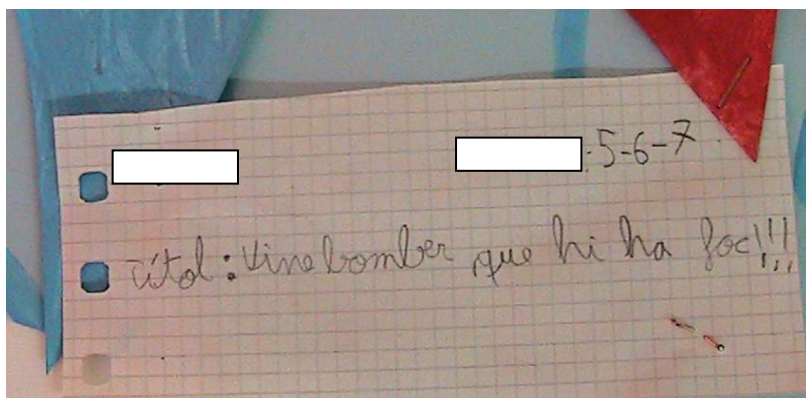 :5-6-7
títol: Vine bomber que hi ha foc!!!